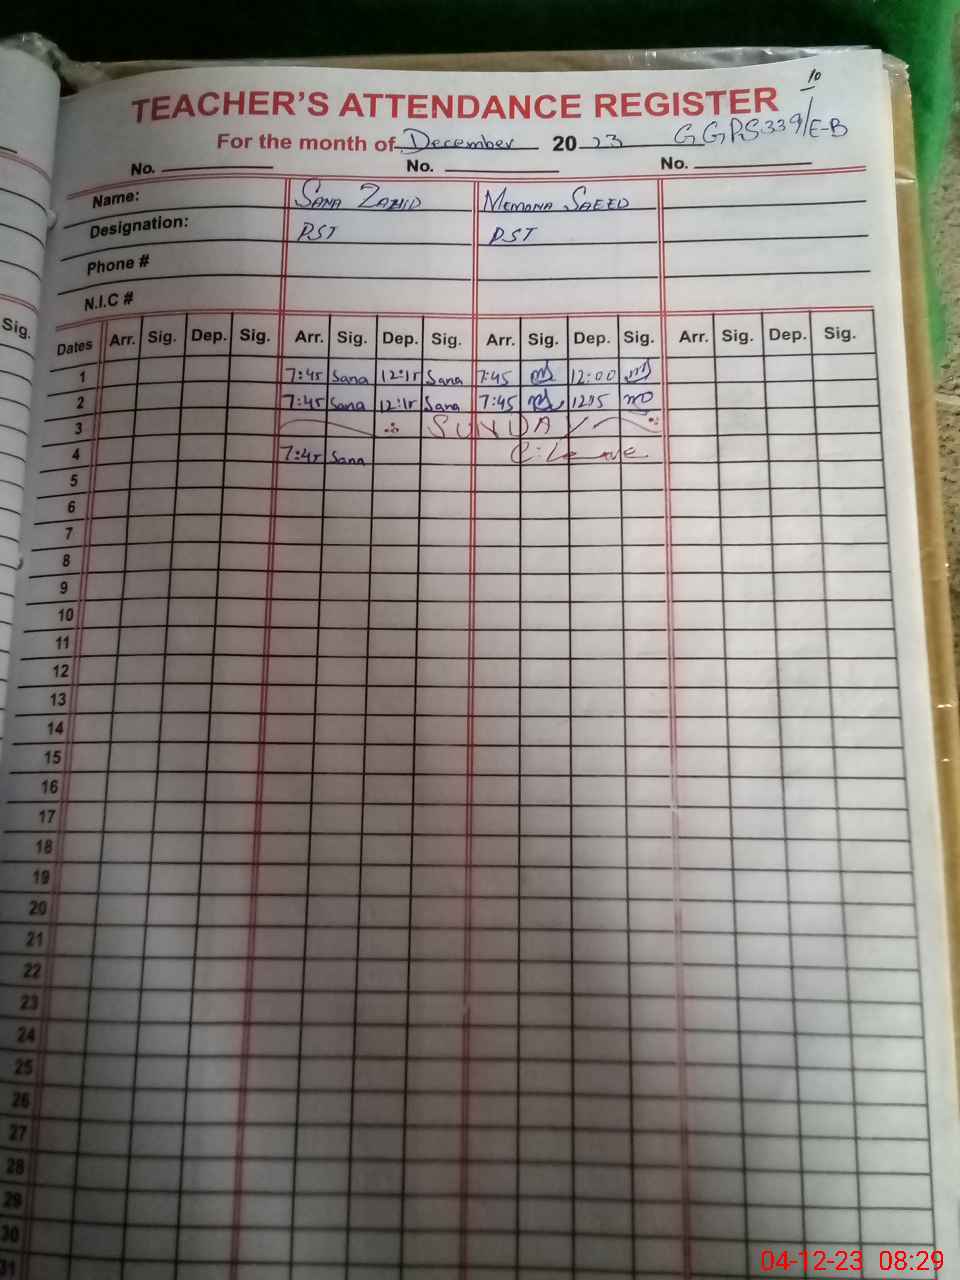 10
TEACHER'S ATTENDANCE REGISTER
For the month of December 2023 GGPS 339/E-B
No. No. No.
Name: SANA ZAHID MEMONA SAEED
Designation: PST PST
Phone #
N.I.C #
Sig.
Dates Arr. Sig. Dep. Sig. Arr. Sig. Dep. Sig. Arr. Sig. Dep. Sig. Arr. Sig. Dep. Sig.
1 7:45 Sana 12:15 Sana 7:45 12:00
2 7:45 Sana 12:15 Sana 7:45 12:15
3 SUNDAY
4 7:45 Sana C:Leave
5
6
7
8
9
10
11
12
13
14
15
16
17
18
19
20
21
22
23
24
25
26
27
28
29
30
31
04-12-23 08:29